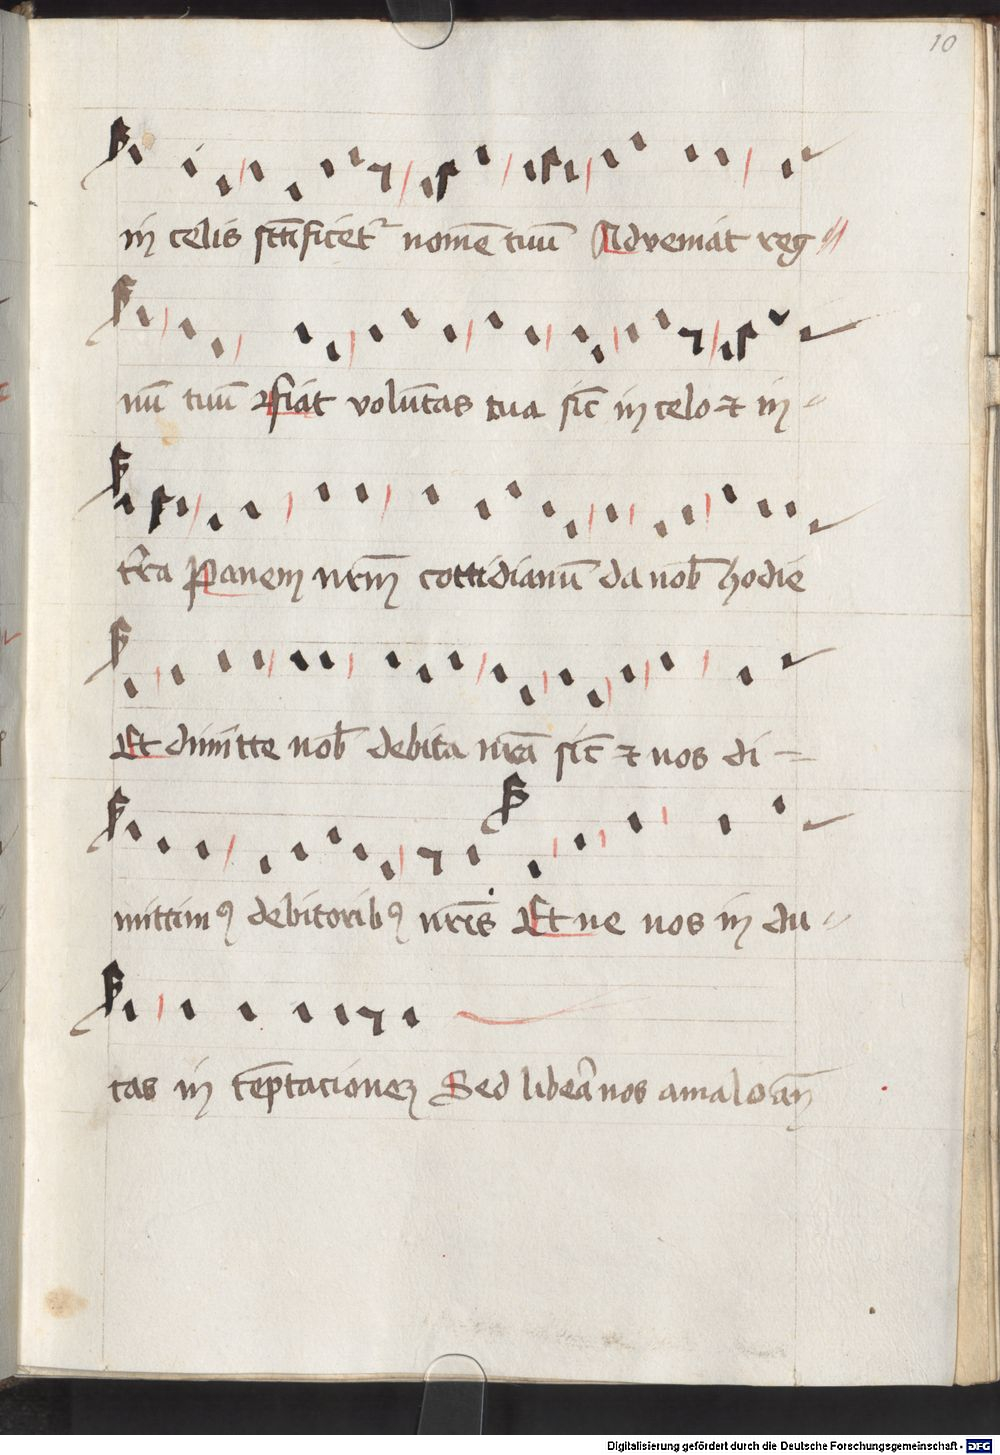 10
in celis sctificet᷑ nomē tuū Adveniat reg
nū tuū fiat volūtas tua sic̄ in celo ⁊ in
t̄ra Panem nrm̄ cottidianū da nob̄ hodie
Et dimitte nob̄ debita nr̄a sic̄ ⁊ nos di
mittimꝰ debitoribꝰ nrīs Et ne nos in du
cas in tēptacionem Sed libera nos amalo am̄
Digitalisierung gefördert durch die Deutsche Forschungsgemeinschaft - DFG